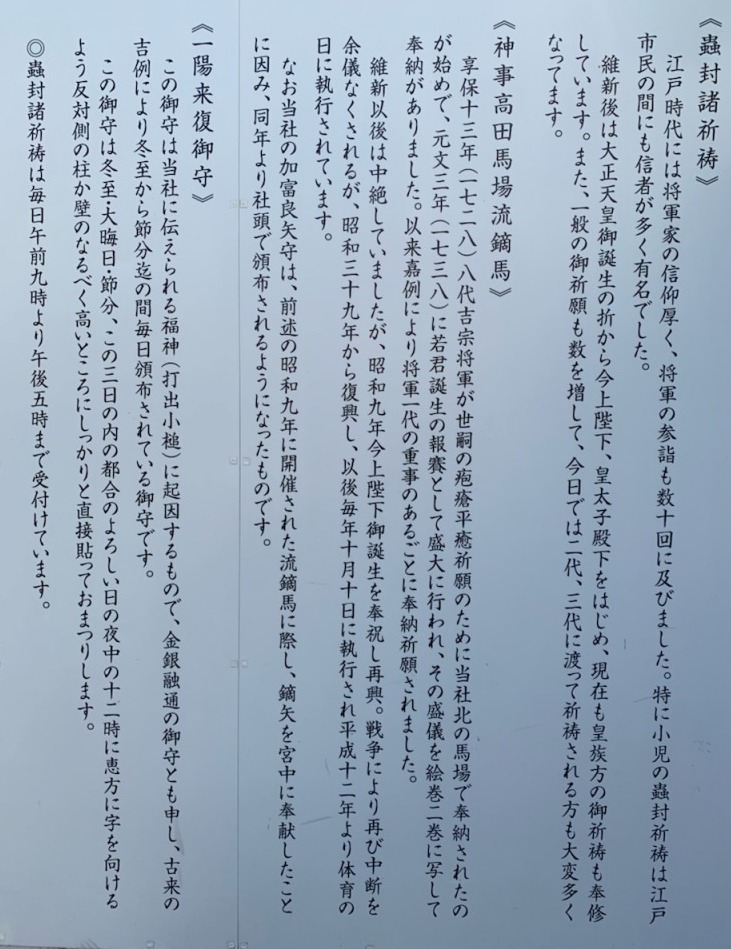 《蟲封諸祈祷》
江戸時代には将軍家の信仰厚く、将軍の参詣も数十回に及びました。特に小児の蟲封祈祷は江戸
市民の間にも信者が多く有名でした。
維新後は大正天皇御誕生の折から今上陛下、皇太子殿下をはじめ、現在も皇族方の御祈祷も奉修
しています。また、一般の御祈願も数を増して、今日では二代、三代に渡って祈祷される方も大変多く
なってます。
《神事高田馬場流鏑馬》
享保十三年（一七二八）八代吉宗将軍が世嗣の疱瘡平癒祈願のために当社北の馬場で奉納されたの
が始めで、元文三年（一七三八）に若君誕生の報賽として盛大に行われ、その盛儀を絵巻二巻に写して
奉納がありました。以来嘉例により将軍一代の重事のあるごとに奉納祈願されました。
維新以後は中絶していましたが、昭和九年今上陛下御誕生を奉祝し再興。戦争により再び中断を
余儀なくされるが、昭和三十九年から復興し、以後毎年十月十日に執行され平成十二年より体育の
日に執行されています。
なお当社の加富良矢守は、前述の昭和九年に開催された流鏑馬に際し、鏑矢を宮中に奉献したこと
に因み、同年より社頭で頒布されるようになったものです。
《一陽来復御守》
この御守は当社に伝えられる福神（打出小槌）に起因するもので、金銀融通の御守とも申し、古来の
吉例により冬至から節分迄の間毎日頒布されている御守です。
この御守は冬至・大晦日・節分、この三日の内の都合のよろしい日の夜中の十二時に恵方に字を向ける
よう反対側の柱か壁のなるべく高いところにしっかりと直接貼っておまつりします。
◎蟲封諸祈祷は毎日午前九時より午後五時まで受付けています。